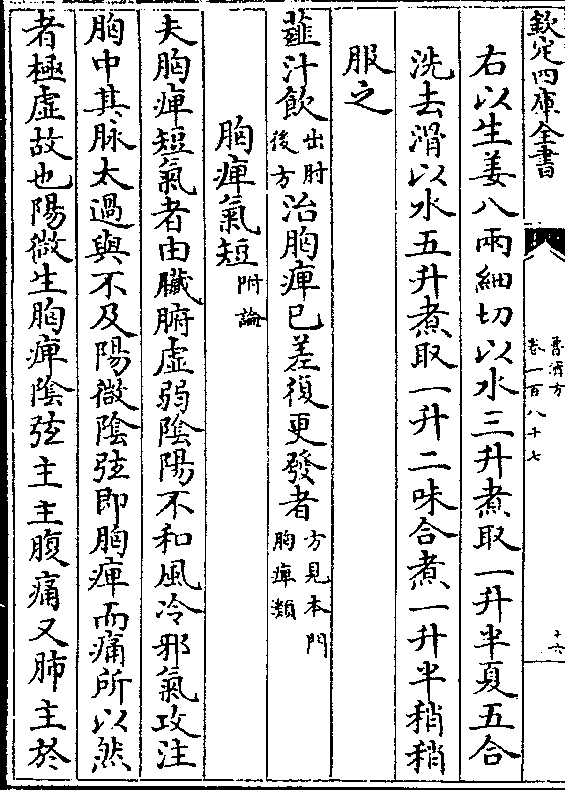 欽定四庫全書
普濟方
卷一百八十七
十六
右以生姜八兩細切以水三升煮取一升半夏五合
洗去滑以水五升煮取一升二味合煮一升半稍稍
服之
薤汁飲出肘後方治胸痺已差復更發者方見本門胸痺類
胸痺氣短附論
夫胸痺短氣者由臟腑虛弱陰陽不和風冷邪氣攻注
胸中其脉太過與不及陽微陰弦即胸痺而痛所以然
者極虛故也陽微生胸痺陰弦主主腹痛又肺主於